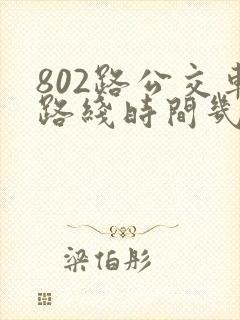 802路公交車
路綫時間幾
梁伯彤